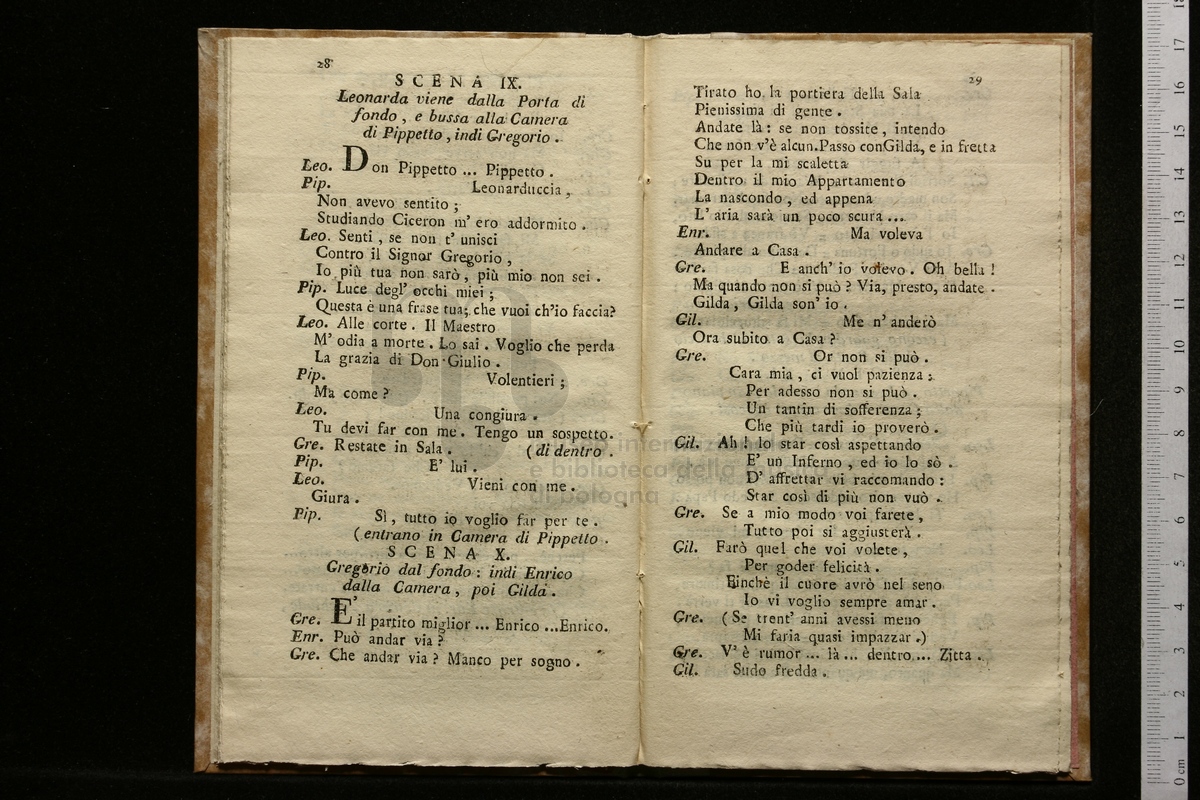 28
SCENA IX.
Leonarda viene dalla Porta di
fondo, e bussa alla Camera
di Pippetto, indi Gregorio.
Leo. Don Pippetto ... Pippetto.
Pip. Leonarduccia,
Non avevo sentito;
Studiando Ciceron m' ero addormito.
Leo. Senti, se non t' unisci
Contro il Signor Gregorio,
Io più tua non sarò, più mio non sei.
Pip. Luce degl' occhi miei;
Questa è una frase tua; che vuoi ch'io faccia?
Leo. Alle corte. Il Maestro
M' odia a morte. Lo sai. Voglio che perda
La grazia di Don Giulio.
Pip. Volentieri;
Ma come?
Leo. Una congiura.
Tu devi far con me. Tengo un sospetto.
Gre. Restate in Sala. (di dentro.
Pip. E' lui.
Leo. Vieni con me.
Giura.
Pip. Sì, tutto io voglio far per te.
(entrano in Camera di Pippetto.
SCENA X.
Gregorio dal fondo: indi Enrico
dalla Camera, poi Gilda.
Gre. E' il partito miglior ... Enrico ...Enrico.
Enr. Può andar via?
Gre. Che andar via? Manco per sogno.
29
Tirato ho la portiera della Sala
Pienissima di gente.
Andate là: se non tossite, intendo
Che non v'è alcun. Passo con Gilda, e in fretta
Su per la mi scaletta
Dentro il mio Appartamento
La nascondo, ed appena
L' aria sarà un poco scura ...
Enr. Ma voleva
Andare a Casa.
Gre. E anch' io volevo. Oh bella!
Ma quando non si può? Via, presto, andate.
Gilda, Gilda son' io.
Gil. Me n' anderò
Ora subito a Casa?
Gre. Or non si può.
Cara mia, ci vuol pazienza;
Per adesso non si può.
Un tantin di sofferenza;
Che più tardi io proverò.
Gil. Ah! lo star così aspettando
E' un Inferno, ed io lo sò.
D' affrettar vi raccomando:
Star così di più non vuò.
Gre. Se a mio modo voi farete,
Tutto poi si aggiusterà.
Gil. Farò quel che voi volete,
Per goder felicità.
Finchè il cuore avrò nel seno
Io vi voglio sempre amar.
Gre. (Se trent' anni avessi meno
Mi faria quasi impazzar.)
Gre. V' è rumor ... là ... dentro ... Zitta.
Gil. Sudo fredda.
museo internazionale
e biblioteca della musica
di bologna
0 cm 1 2 3 4 5 6 7 8 9 10 11 12 13 14 15 16 17 18